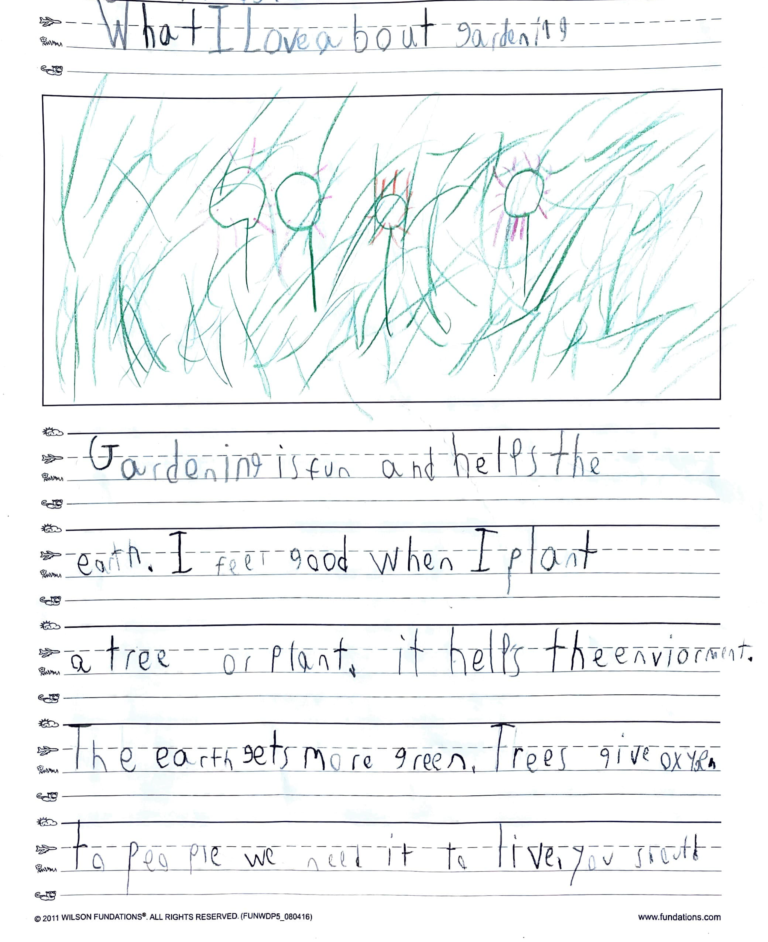 What I Love about gardening
Gardening is fun and helps the
earth. I feel good when I plant
a tree or plant. it helps the enviorment.
The earth gets more green. Trees give oxygen
to people we need it to live. you
© 2011 WILSON FUNDATIONS®. ALL RIGHTS RESERVED. (FUNWDP5_080416)
www.fundations.com